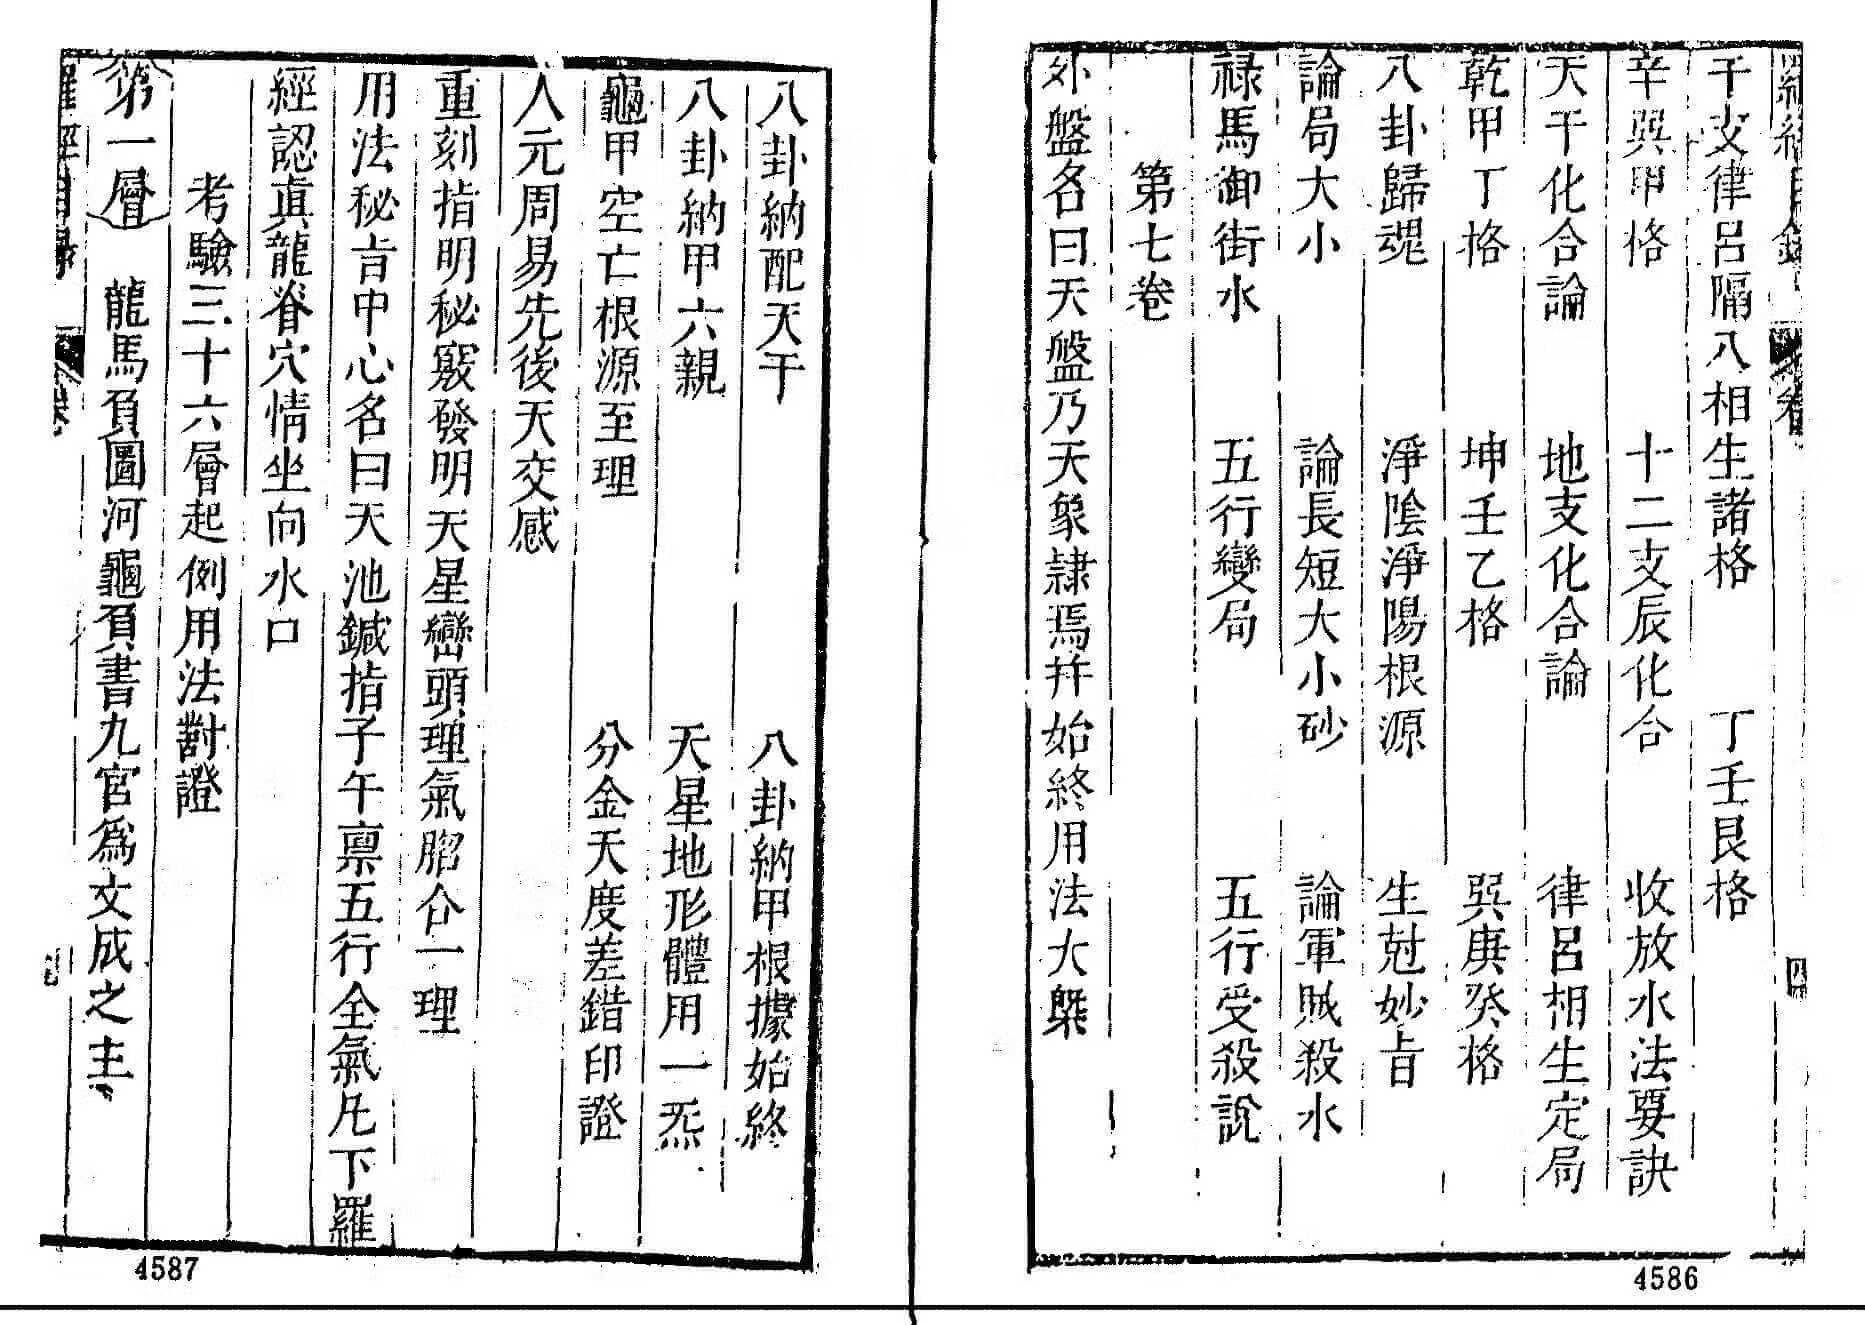 干支律呂隔八相生諸格　丁壬艮格
辛巽甲格　十二支辰化合　收放水法要訣
天干化合論　地支化合論　律呂相生定局
乾甲丁格　坤壬乙格　巽庚癸格
八卦歸魂　淨陰淨陽根源　生尅妙旨
論局大小　論長短大小砂　論軍賊殺水
祿馬御街水　五行變局　五行受殺說
第七卷
外盤名曰天盤乃天象隷焉幷始終用法大槩
4586
八卦納配天干　八卦納甲根據始終
八卦納甲六親　天星地形體用一炁
龜甲空亡根源至理　分金天度差錯印證
人元周易先後天交感
重刻指明秘竅發明天星巒頭理氣脗合一理
用法秘旨中心名曰天池鍼指子午禀五行全氣凡下羅
經認眞龍脊穴情坐向水口
考驗三十六層起例用法對證
第一層　龍馬負圖河龜負書九宮爲文成之主
羅經目録
卷
4587